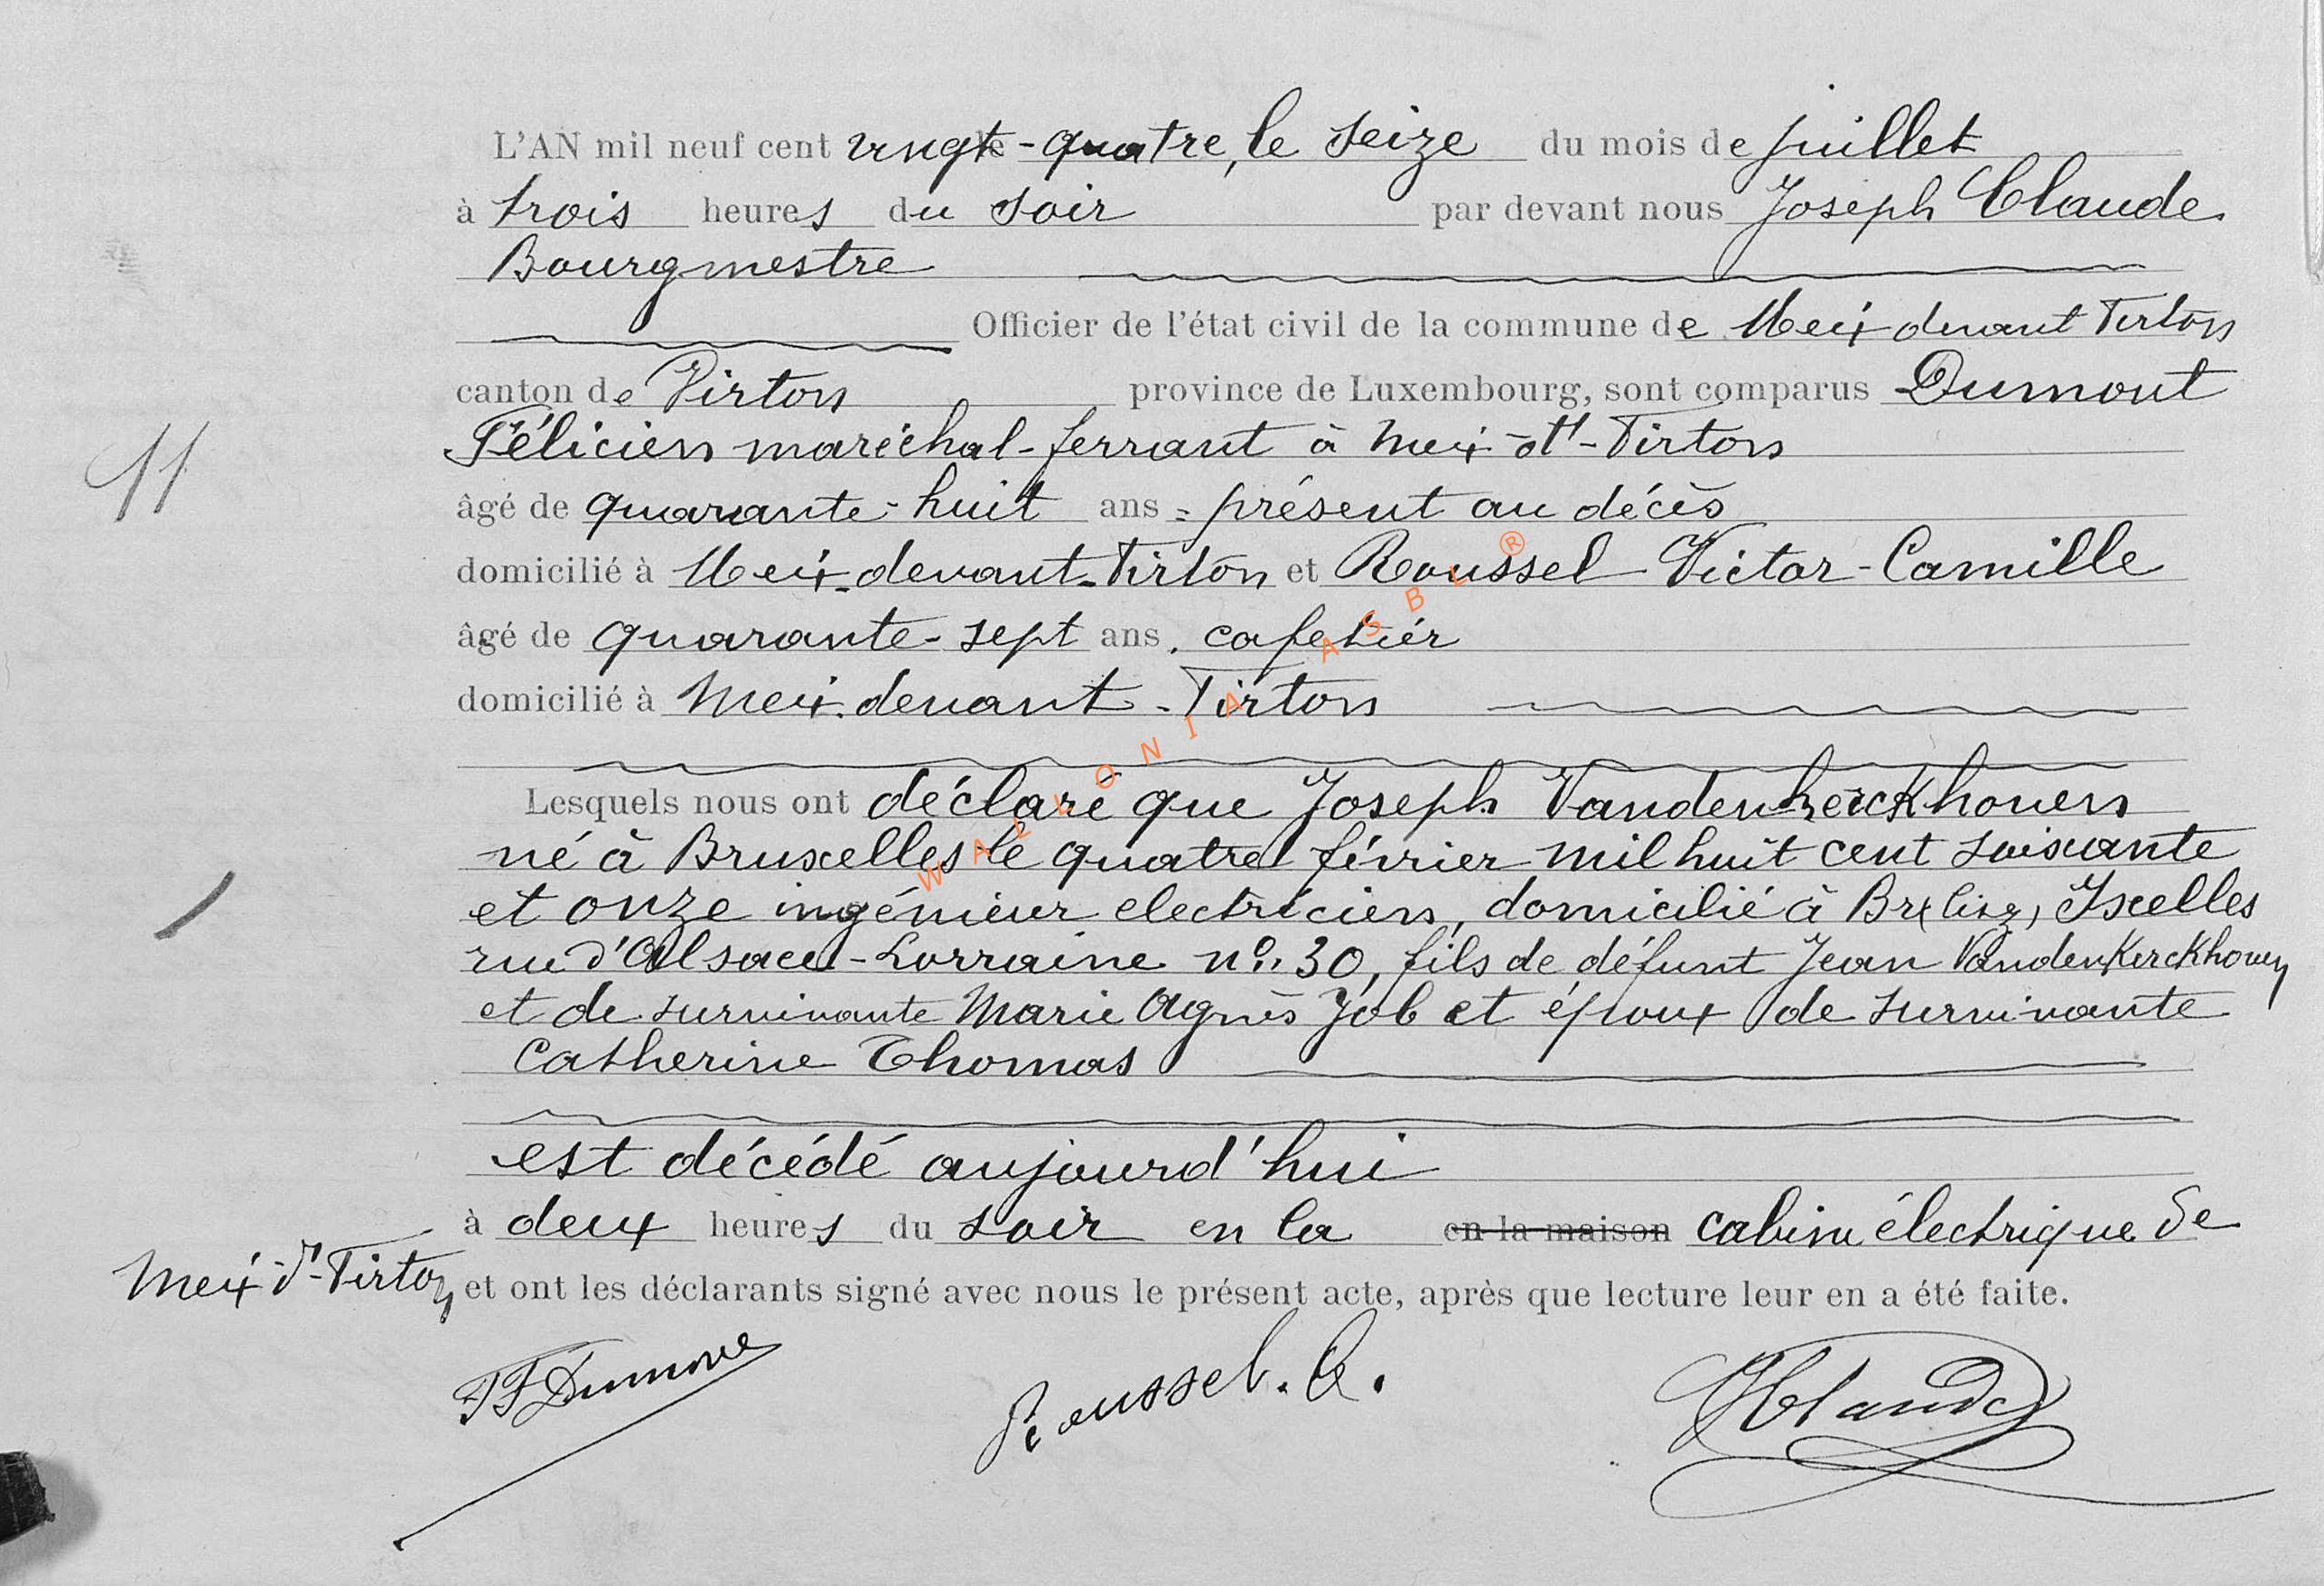 L'AN mil neuf cent vingt-quatre, le seize du mois de juillet
à trois heures du soir par devant nous Joseph Claude
Bourgmestre
Officier de l'état civil de la commune de Meix devant Virton
canton de Virton province de Luxembourg, sont comparus Dumont
Félicien maréchal-ferrant à Meix-dt-Virton
11
âgé de quarante-huit ans = présent au décès
domicilié à Meix-devant-Virton et Roussel Victor-Camille
âgé de quarante-sept ans. cafetier
domicilié à Meix-devant-Virton
WALLONIA ASBL ®
Lesquels nous ont déclaré que Joseph Vandenkerckhoven
né à Bruxelles le quatre février mil huit cent soixante
et onze ingénieur electricien, domicilié à Ixelles
rue d'Alsace-Lorraine n° 30, fils de défunt Jean Vandenkerckhoven
et de survivante Marie Agnès Job et époux de survivante
Catherine Thomas
est décédé aujourd'hui
à deux heures du soir en la en la maison cabine électrique de
Meix-dt-Virton et ont les déclarants signé avec nous le présent acte, après que lecture leur en a été faite.
Roussel. C. JClaude